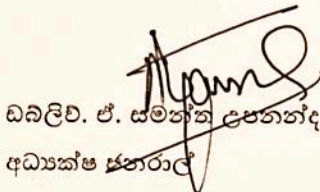 ඩබ්ලිව්. ඒ. සමන්ත උපනන්ද
අධ්‍යක්ෂ ජනරාල්